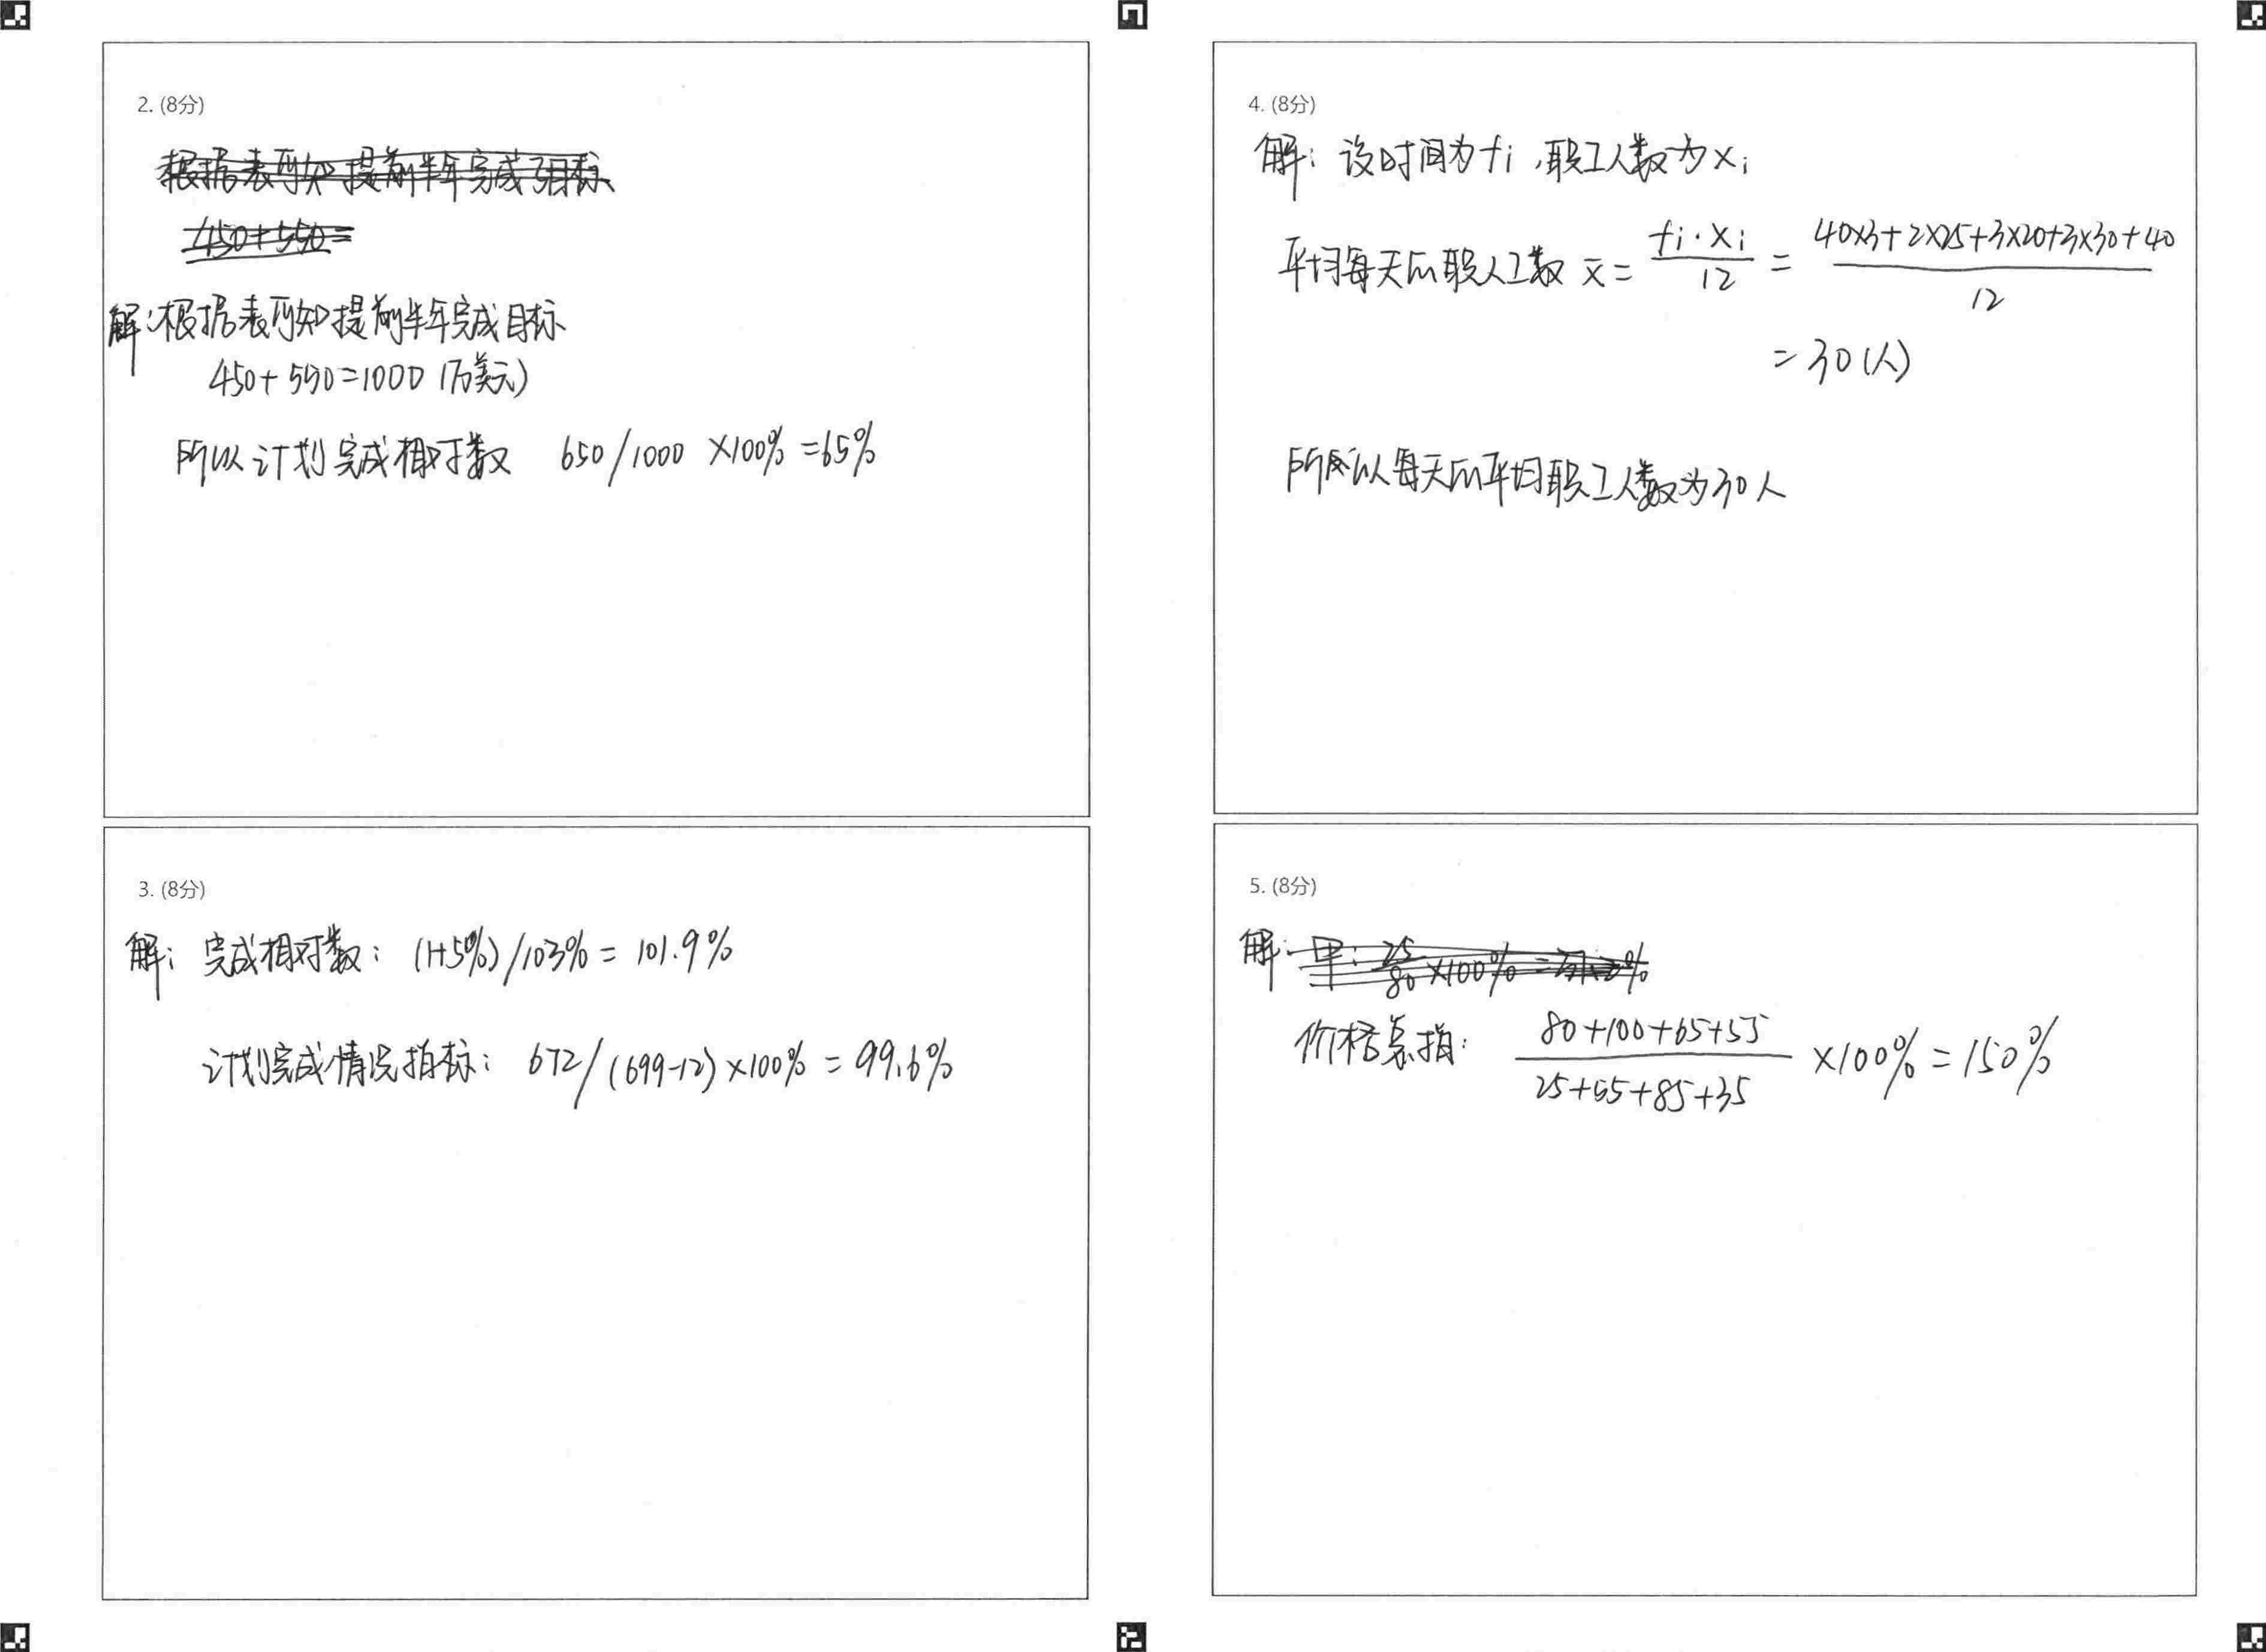 2. (8分)
解:根据表可知提前半年完成目标
450+550=1000 (万美元)
所以计划完成相对数 650/1000 ×100% =65%
3. (8分)
解: 完成相对数: (1+5%)/103% = 101.9%
计划完成情况指标: 672/(699-12)×100% = 99.6%
4. (8分)
解: 设时间为fi ,职工人数为xi
平均每天的职人工数 x̄ = fi·xi/12 = 40×3+2×25+3×20+3×30+40/12
= 30(人)
所以每天的平均职工人数为30人
5. (8分)
解:
价格总指: 80+100+65+55/25+55+85+35 ×100% = 150%